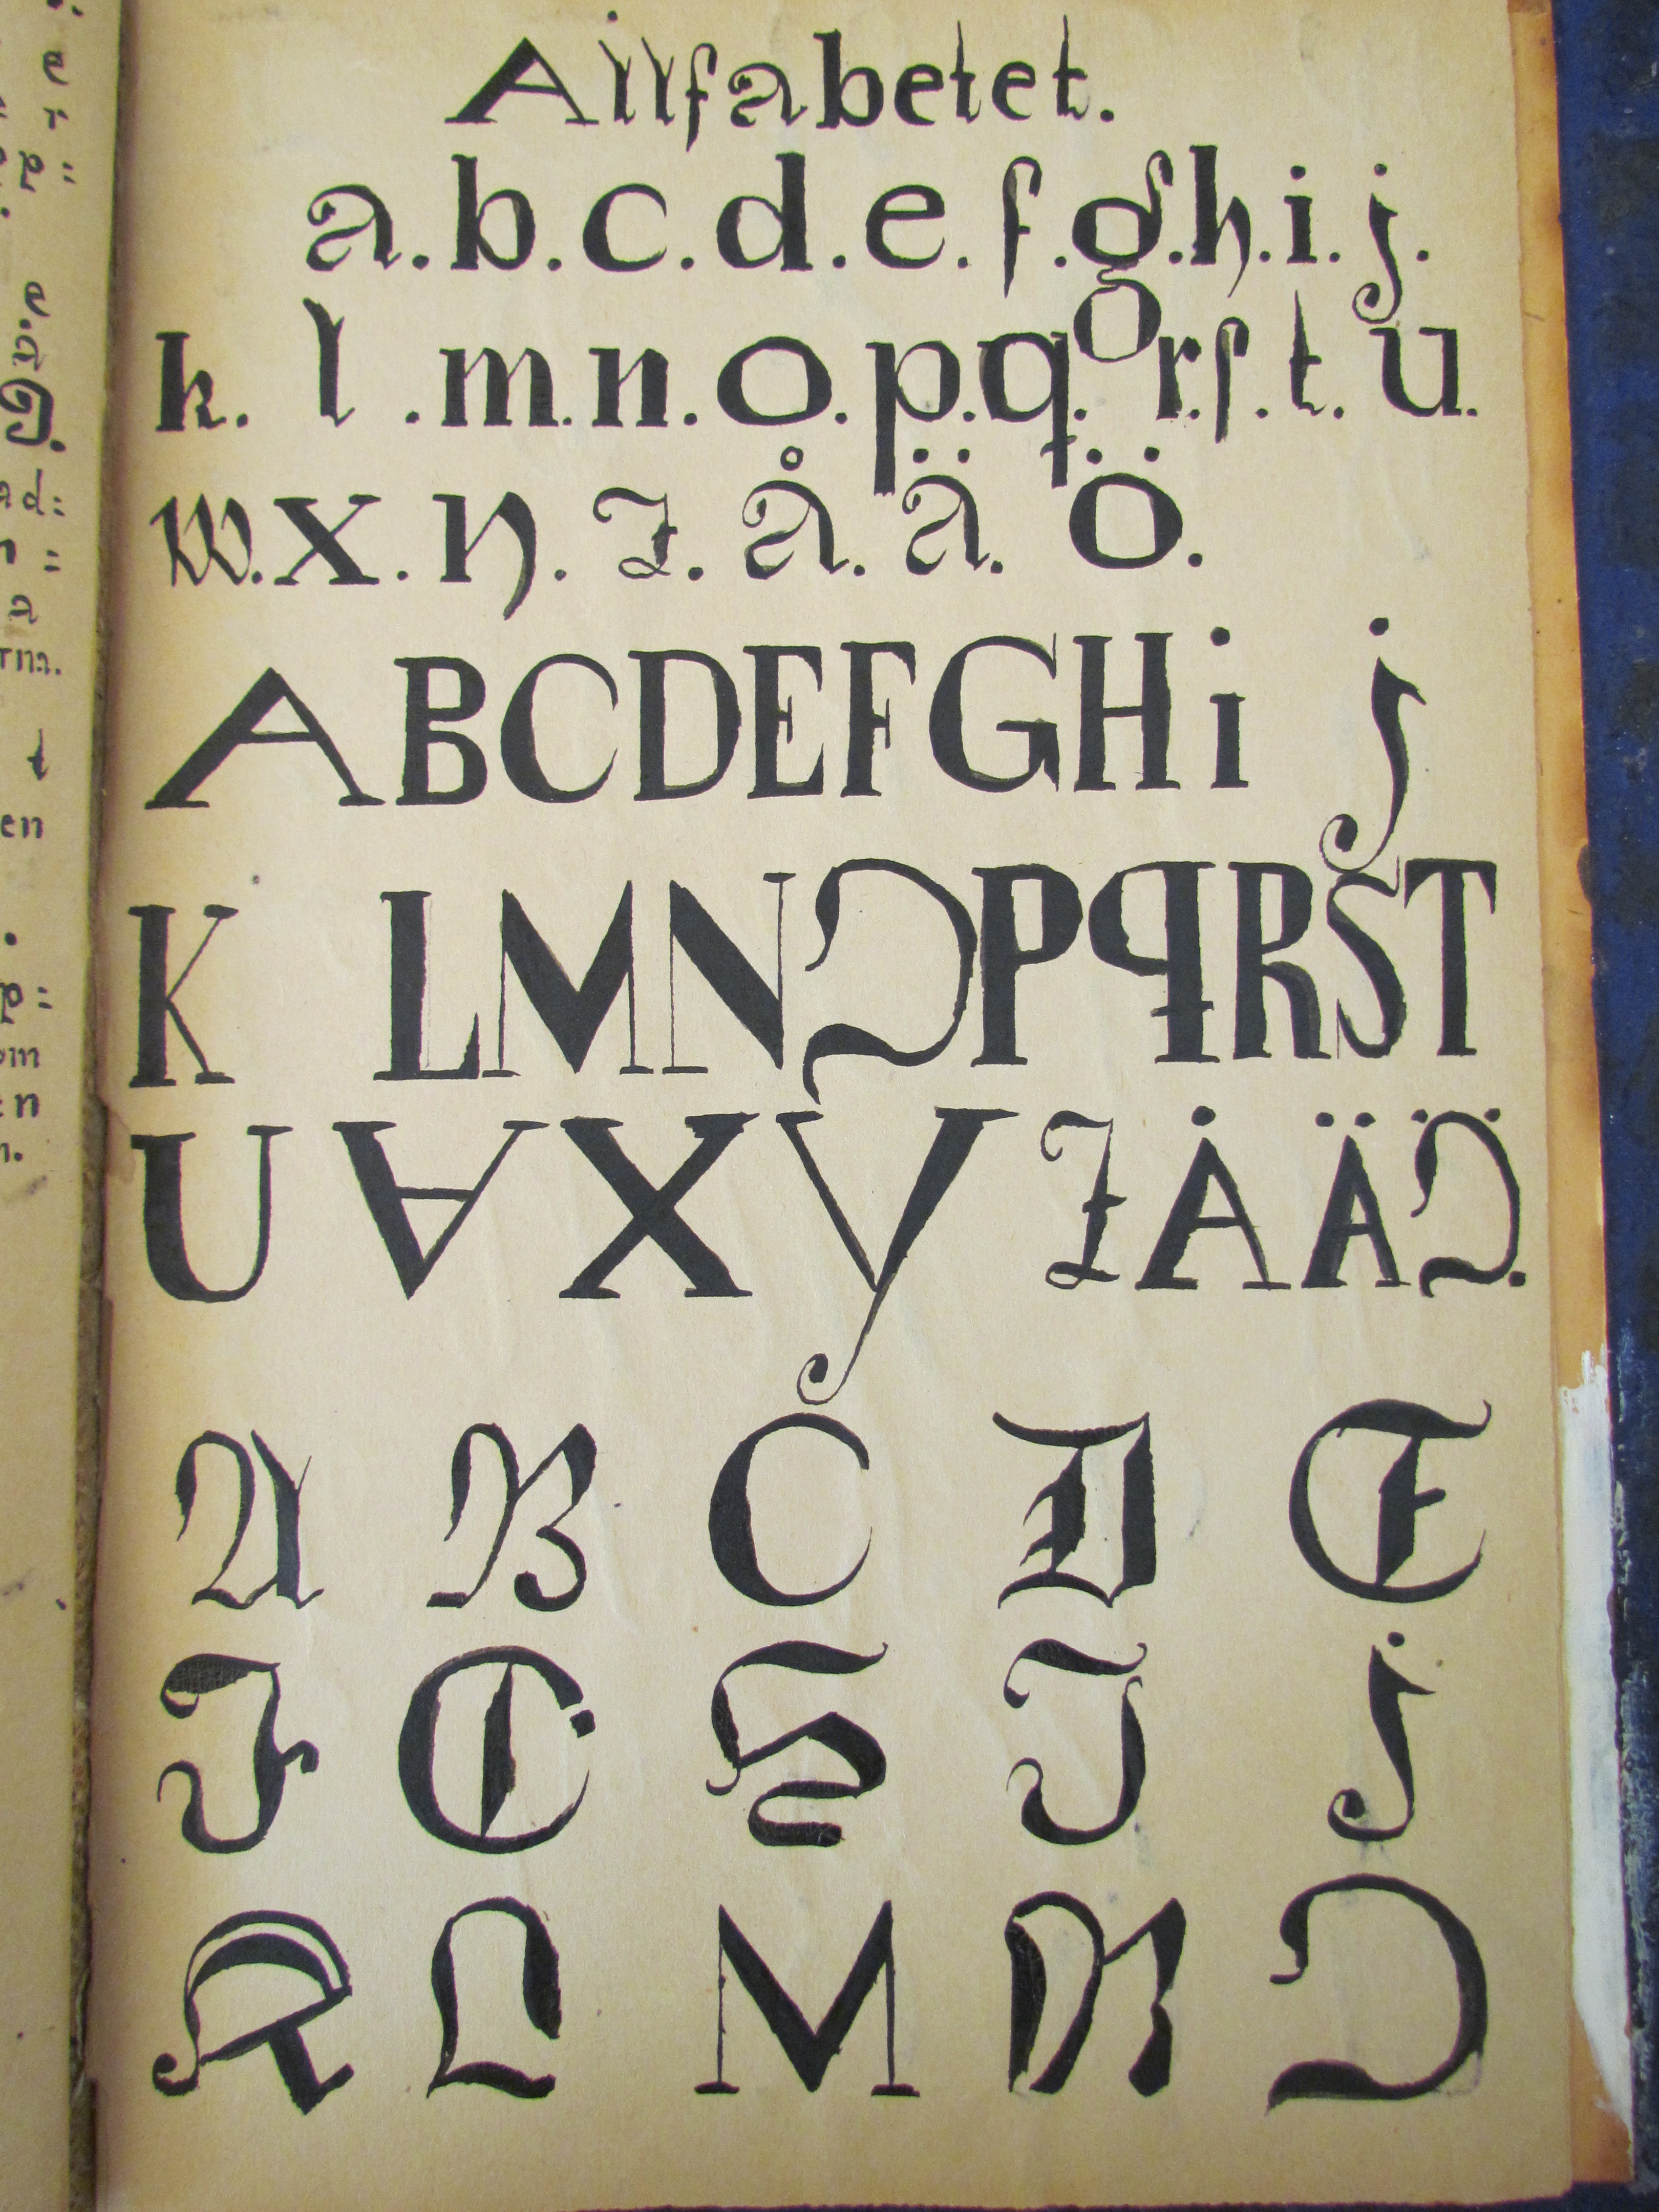 Allfabetet.
a.b.c.d.e.f.g.h.i.j.
k. l .m.n.o.p.q.r.s.t.u.
w.x.y.z.å.ä.ö.
ABCDEFGHij
KLMNOPqRST
UVXYZÅÄÖ.
A B C D E
F G H I J
K L M N O
e
r
ad:
a
t
en
om
en